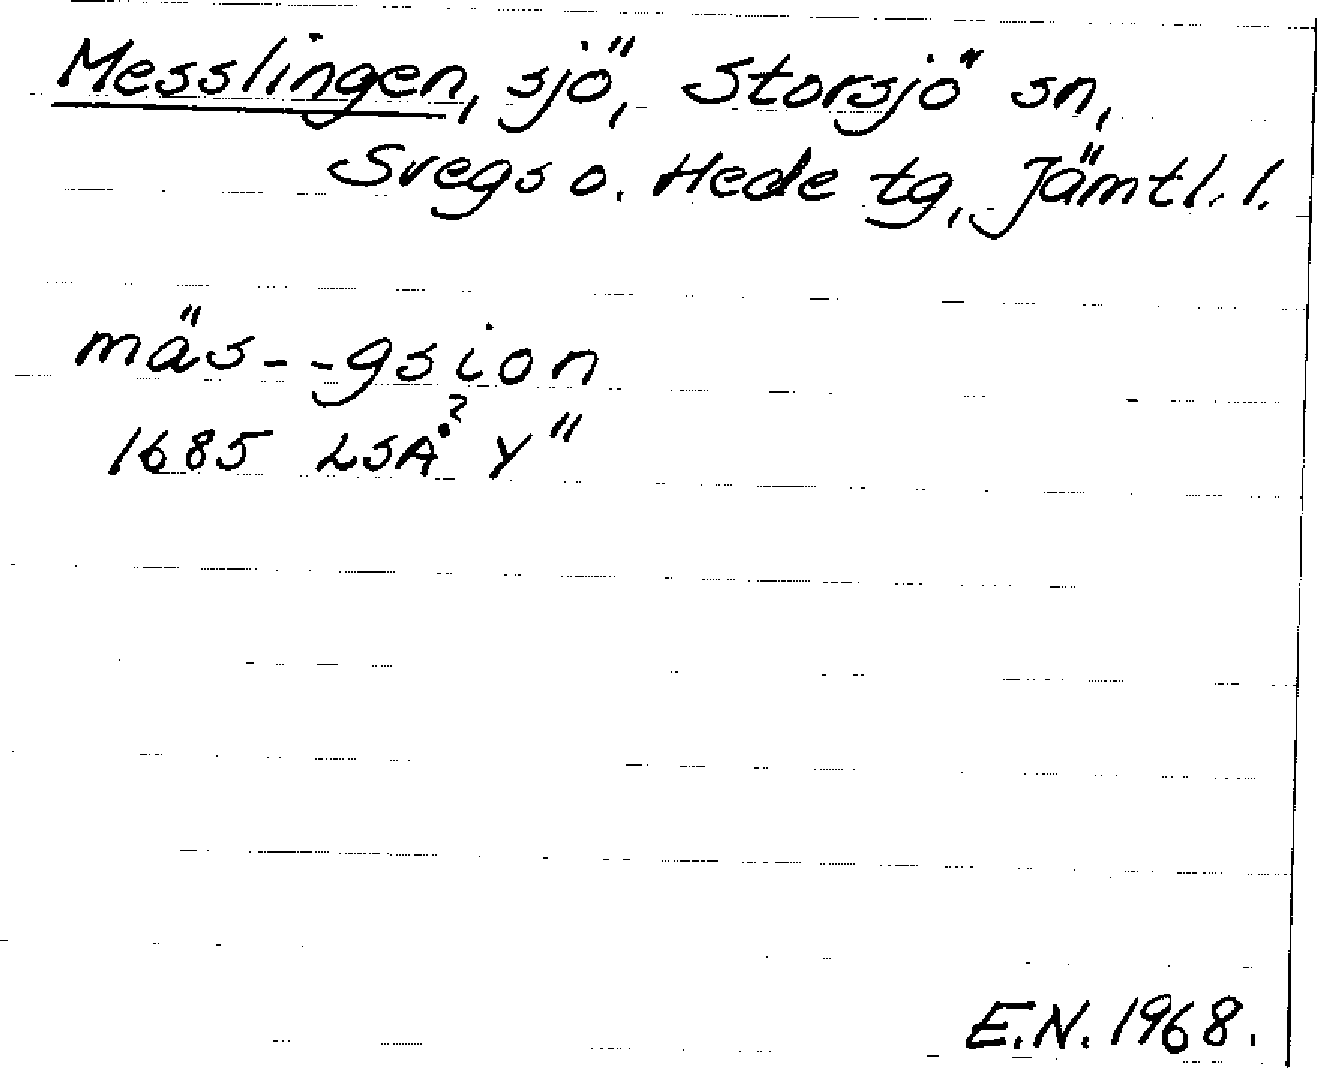 Messlingen, sjö, Storsjö sn,
Svegs o. Hede tg, Jämtl. l.
mäs--gsion
1685 LSA? Y"
E.N. 1968.